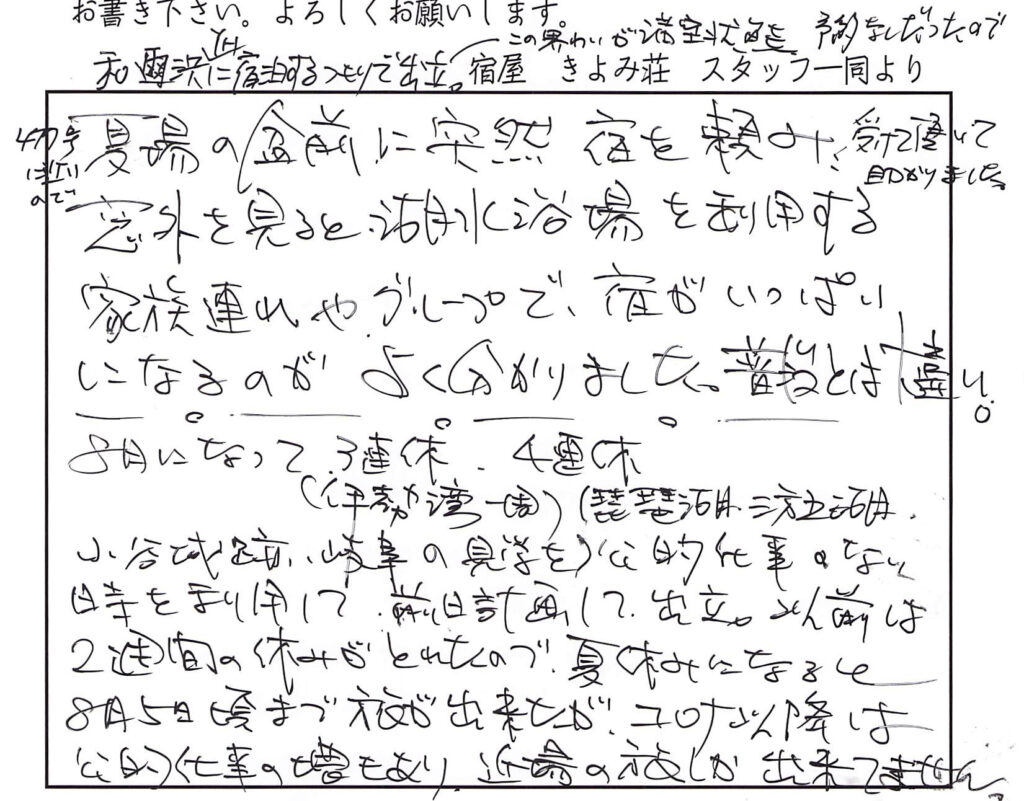 お書き下さい。よろしくお願いします。
この界わいが満室状態を 予約なしだったので
和爾浜YHに宿泊するつもりで出立。
宿屋 きよみ荘 スタッフ一同より
夏場の盆前に突然宿を頼み、受けて頂いて
助かりました。
窓外を見ると、湖水浴場を利用する
家族連れや、グループで、宿がいっぱい
になるのがよく分かりました。普段とは違い。
8月になって、3連休、4連休
(伊勢湾一周)(琵琶湖、三方五湖、
小谷城跡、岐阜の見学を)公的仕事のない
日時を利用して、前日計画して、出立。以前は
2週間の休みがとれたので、夏休みになると
8月5日頃まで旅が出来たが、コロナ以降は
公的仕事の増もあり、近場の旅しか出来てません。